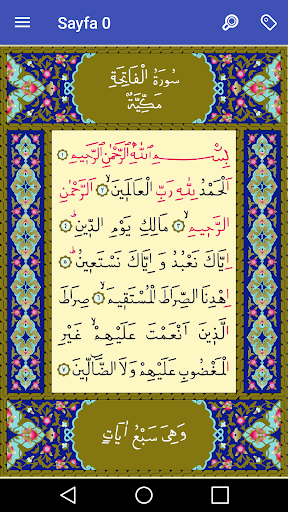 Sayfa 0
سُورَةُ الْفَاتِحَةِ
مَكِّيَّةٌ
بِسْمِ اللّٰهِ الرَّحْمٰنِ الرَّحٖيمِ ﴿١﴾
اَلْحَمْدُ لِلّٰهِ رَبِّ الْعَالَمٖينَ ﴿٢﴾ اَلرَّحْمٰنِ
الرَّحٖيمِ ﴿٣﴾ مَالِكِ يَوْمِ الدّٖينِ ﴿٤﴾
اِيَّاكَ نَعْبُدُ وَ اِيَّاكَ نَسْتَعٖينُ ﴿٥﴾
اِهْدِنَا الصِّرَاطَ الْمُسْتَقٖيمَ ﴿٦﴾ صِرَاطَ
الَّذٖينَ اَنْعَمْتَ عَلَيْهِمْ غَيْرِ
الْمَغْضُوبِ عَلَيْهِمْ وَلَا الضَّالّٖينَ ﴿٧﴾
وَهِىَ سَبْعُ اٰيَاتٍ